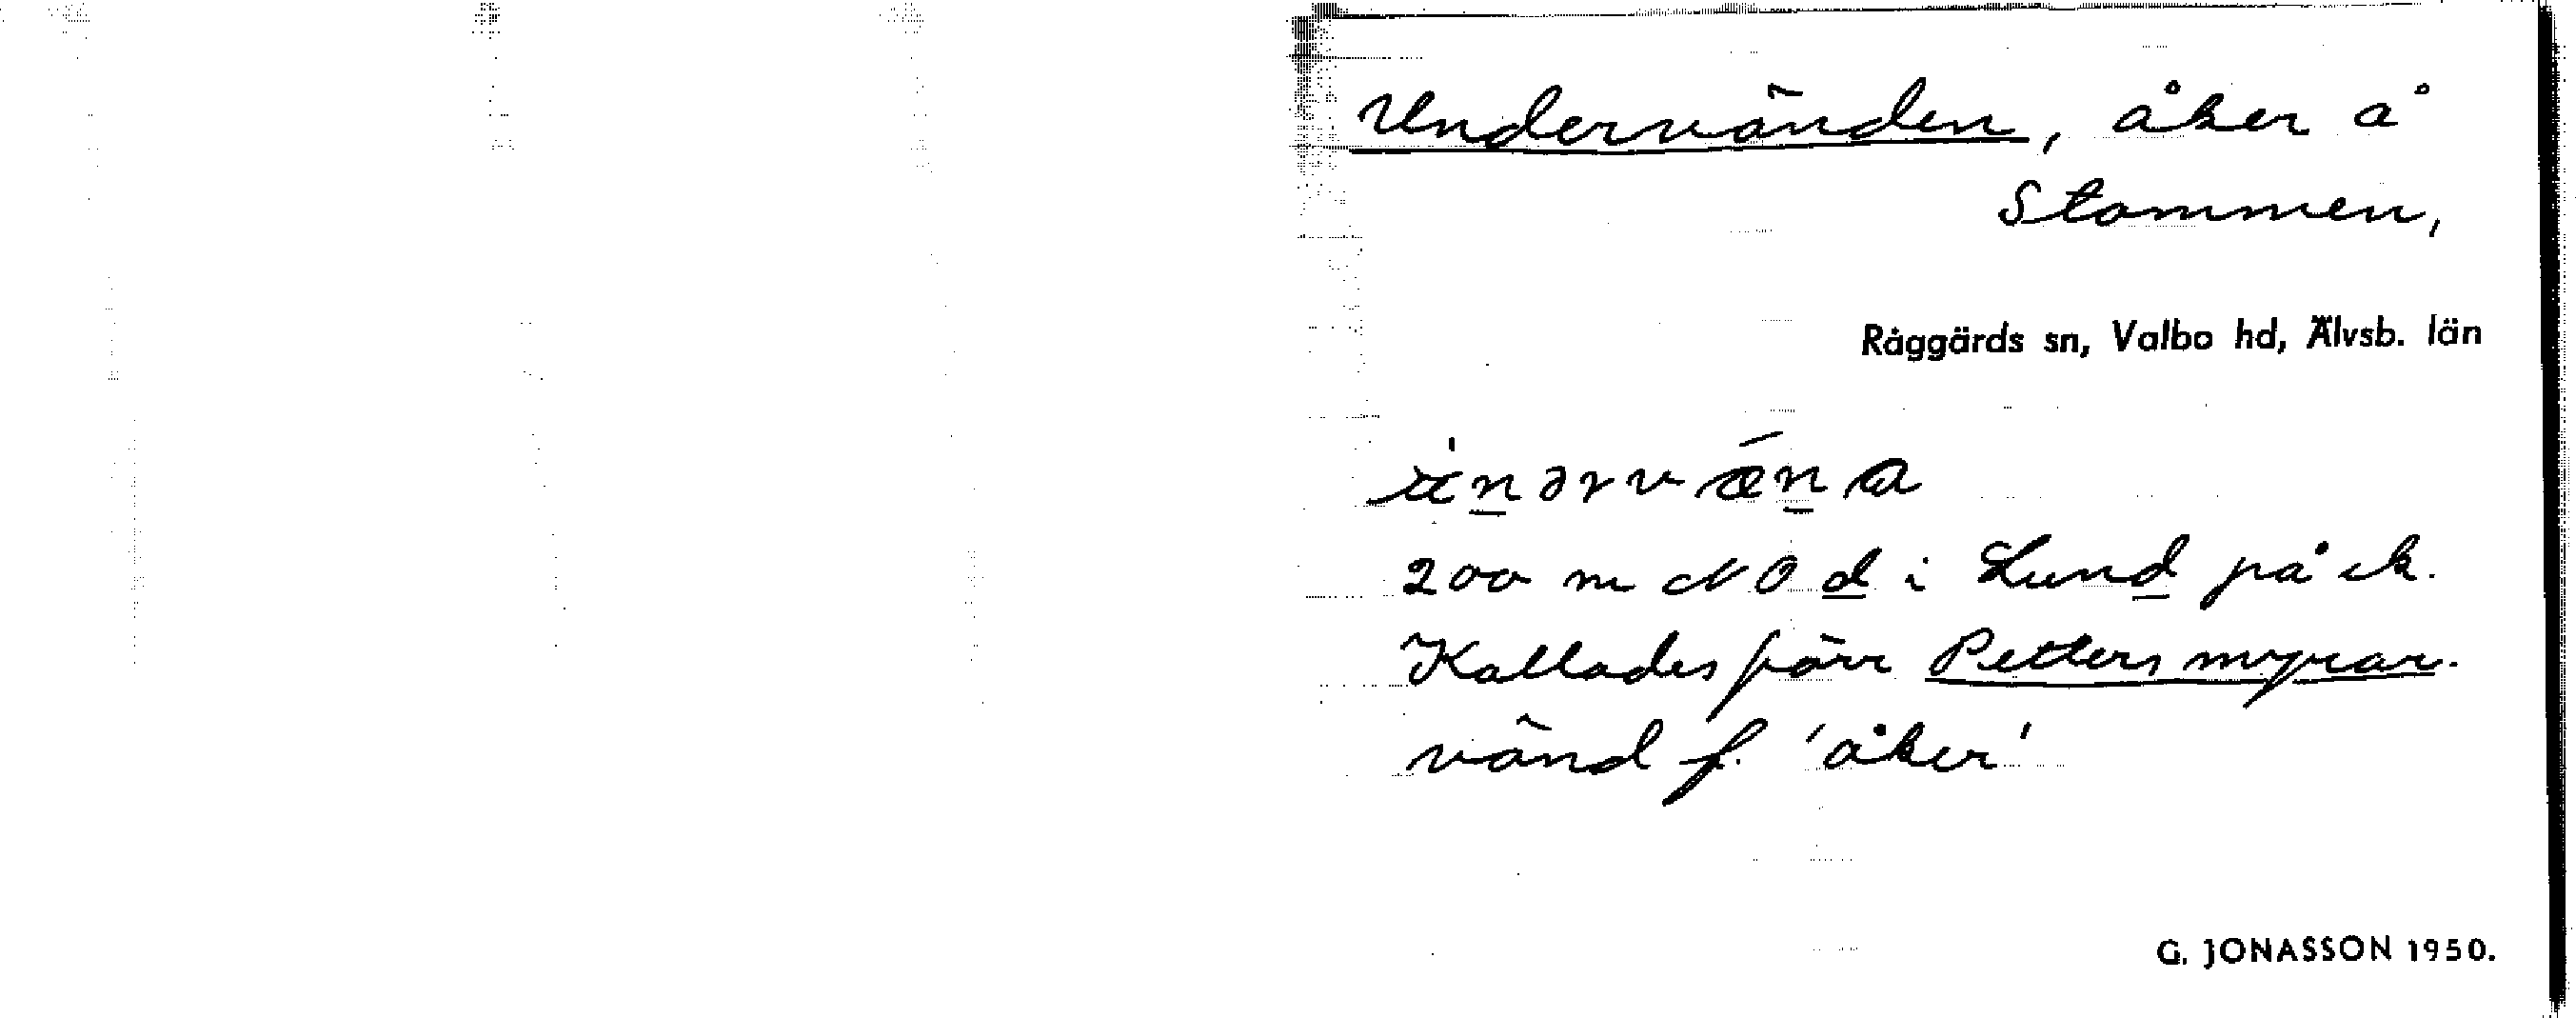 Undervänden, åker å
Stommen,
Råggärds sn, Valbo hd, Älvsb. län
200 m NO d i Lund på ek.
Kallades förr Petters myrar.
vänd f. 'åker'
G. JONASSON 1950.